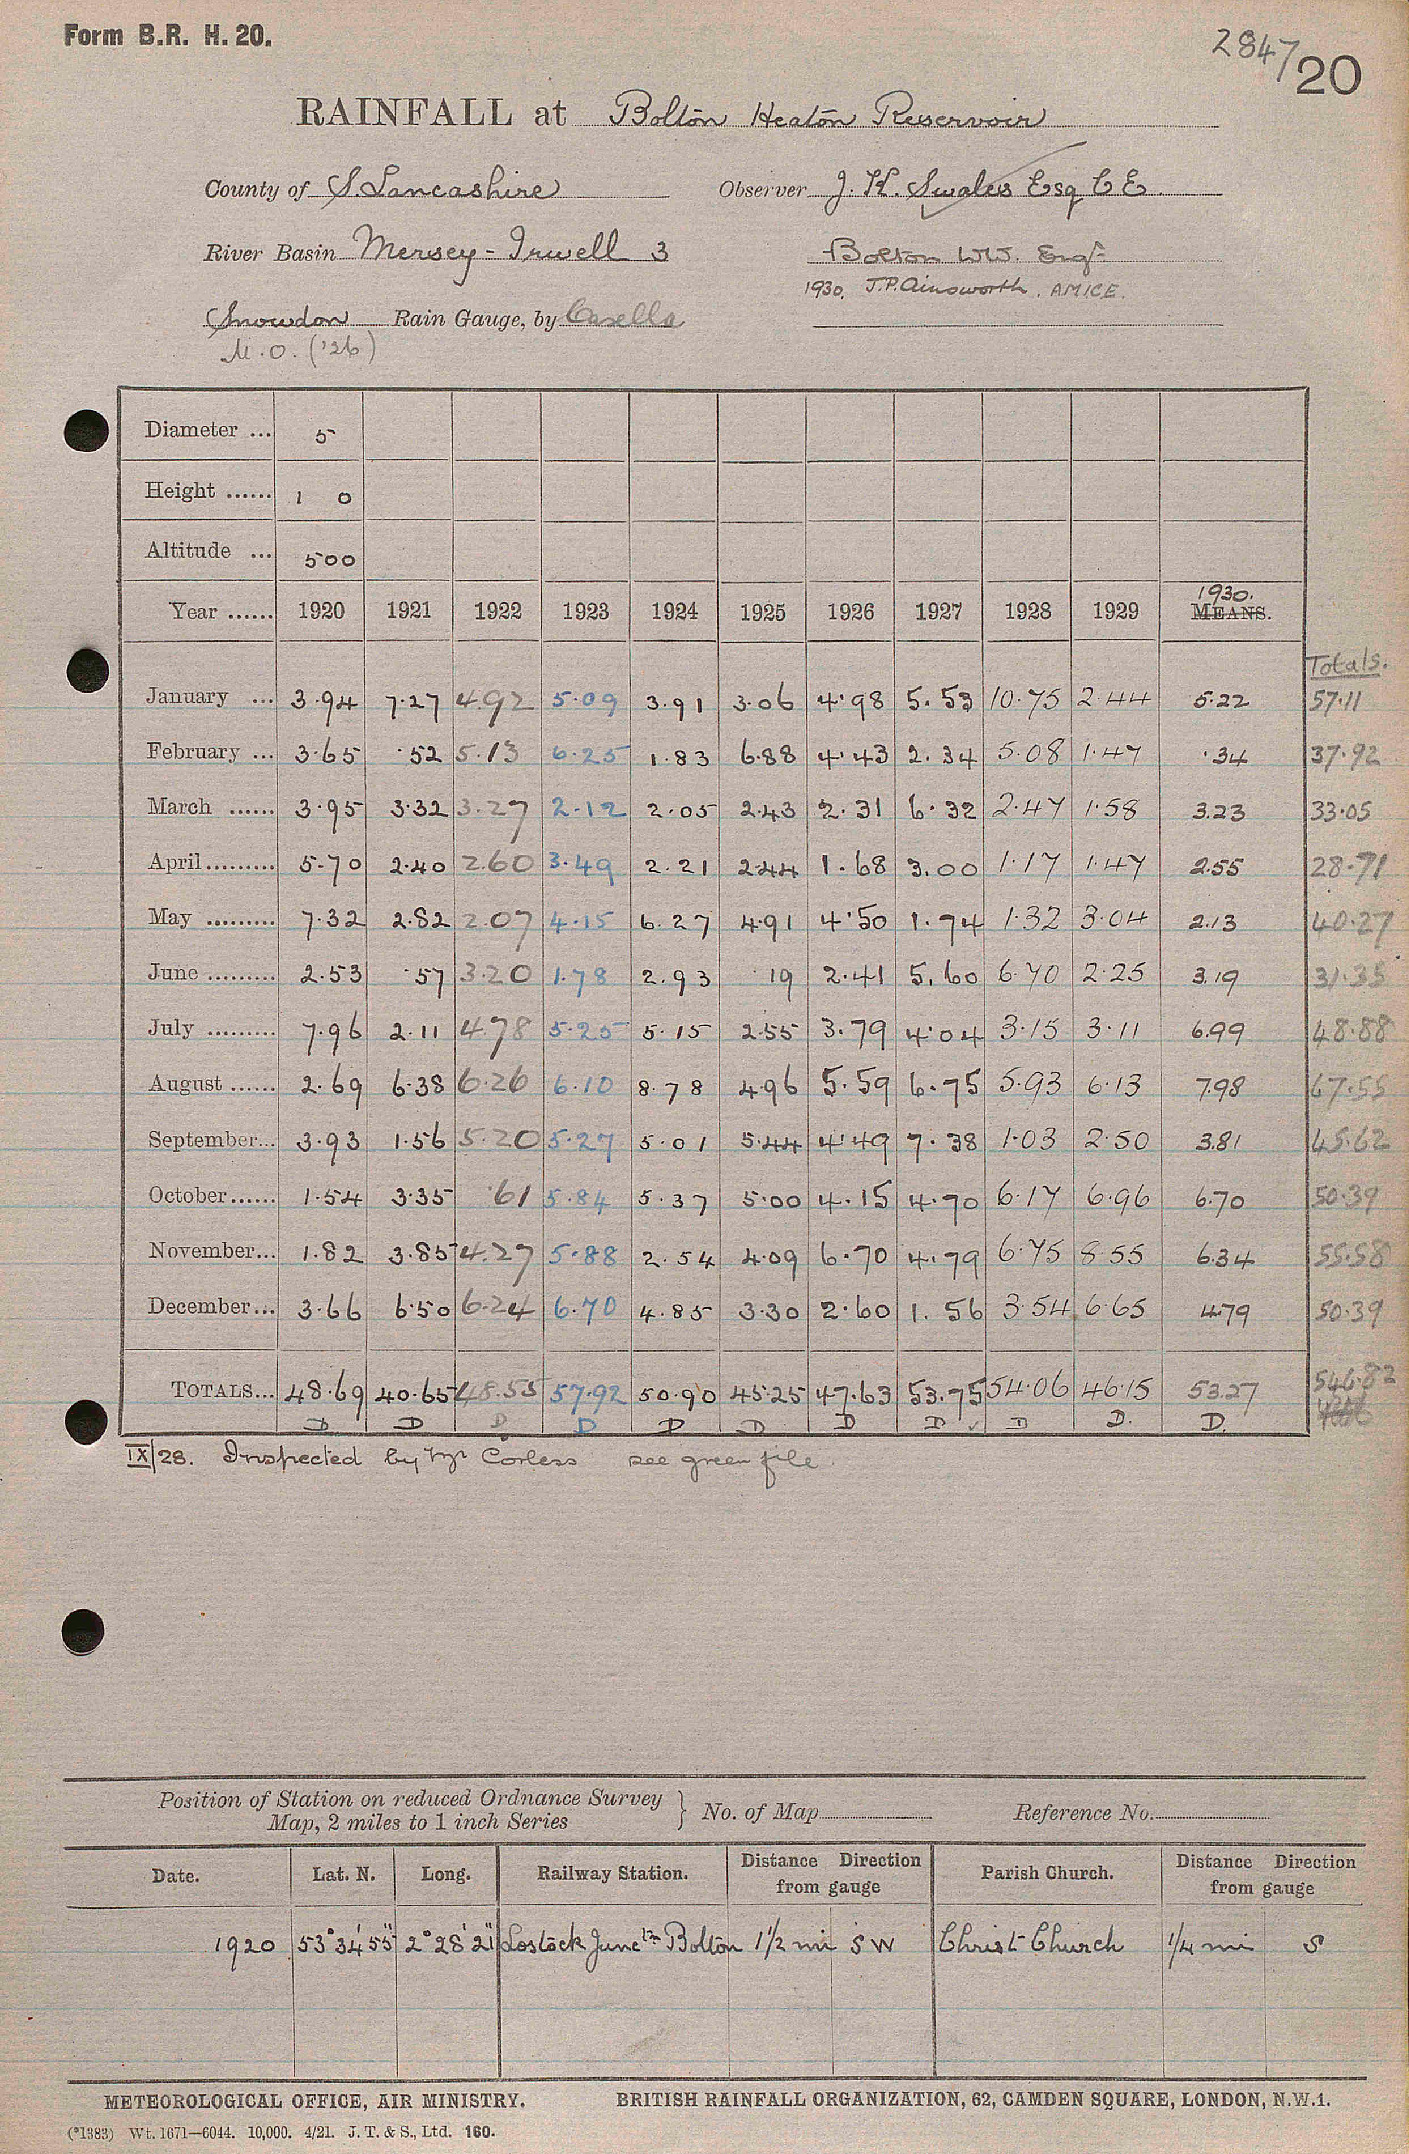 Form B.R. H. 20.
2847/20
RAINFALL at Bolton Heaton Reservoir
County of S. Lancashire Observer J. H. Swales Esq C E
River Basin Mersey - Irwell 3 Bolton WW. Engr
1930. J.P. Ainsworth, AMICE.
Snowdon Rain Gauge, by Casella
M.O. ('26)
Diameter ... 5
Height ...... 1 0
Altitude ... 500
Year ...... 1920 1921 1922 1923 1924 1925 1926 1927 1928 1929 1930. MEANS.
Totals.
January ... 3.94 7.27 4.92 5.09 3.91 3.06 4.98 5.53 10.75 2.44 5.22 57.11
February ... 3.65 .52 5.13 6.25 1.83 6.88 4.43 2.34 5.08 1.47 .34 37.92
March ...... 3.95 3.32 3.27 2.12 2.05 2.43 2.31 6.32 2.47 1.58 3.23 33.05
April ......... 5.70 2.40 2.60 3.49 2.21 2.44 1.68 3.00 1.17 1.47 2.55 28.71
May ......... 7.32 2.82 2.07 4.15 6.27 4.91 4.50 1.74 1.32 3.04 2.13 40.27
June ......... 2.53 .57 3.20 1.78 2.93 .19 2.41 5.60 6.70 2.25 3.19 31.35
July ......... 7.96 2.11 4.78 5.25 5.15 2.55 3.79 4.04 3.15 3.11 6.99 48.88
August ...... 2.69 6.38 6.26 6.10 8.78 4.96 5.59 6.75 5.93 6.13 7.98 67.55
September... 3.93 1.56 5.20 5.27 5.01 5.44 4.49 7.38 1.03 2.50 3.81 45.62
October ...... 1.54 3.35 .61 5.84 5.37 5.00 4.15 4.70 6.17 6.96 6.70 50.39
November... 1.82 3.85 4.27 5.88 2.54 4.09 6.70 4.79 6.75 8.55 6.34 55.58
December... 3.66 6.50 6.24 6.70 4.85 3.30 2.60 1.56 3.54 6.65 4.79 50.39
TOTALS... 48.69 40.65 48.55 57.92 50.90 45.25 47.63 53.75 54.06 46.15 53.27 546.82
D D D D D D D D D D. D.
IX/28. Inspected by Mr Corless see green file.
Position of Station on reduced Ordnance Survey
Map, 2 miles to 1 inch Series } No. of Map Reference No.
Date. Lat. N. Long. Railway Station. Distance Direction from gauge Parish Church. Distance Direction from gauge
1920 53°34'55" 2°28'21" Lostock Juncn Bolton 1½ mi SW Christ Church ¼ mi S
METEOROLOGICAL OFFICE, AIR MINISTRY. BRITISH RAINFALL ORGANIZATION, 62, CAMDEN SQUARE, LONDON, N.W.1.
(*1383) Wt. 1671—6044. 10,000. 4/21. J. T. & S., Ltd. 160.